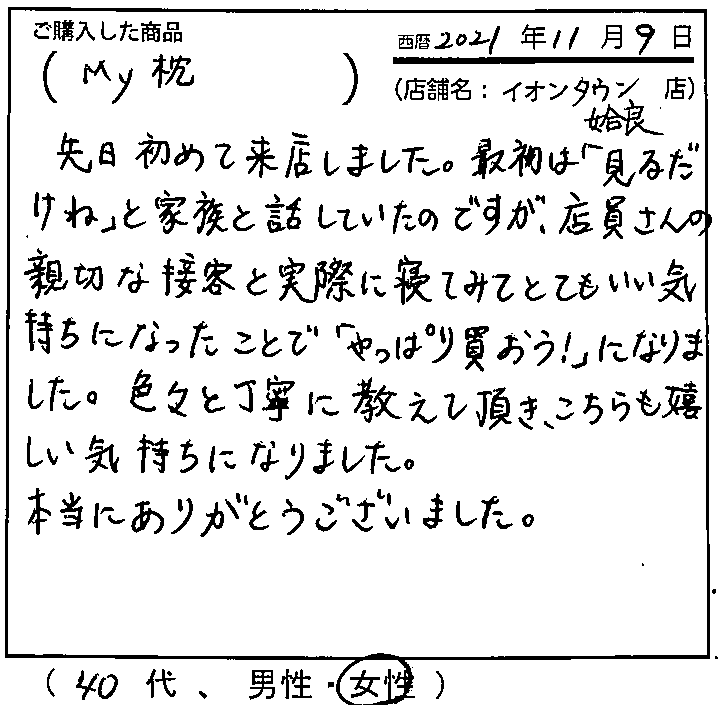 ご購入した商品
西暦 2021 年 11 月 9 日
( My 枕 )
(店舗名：イオンタウン 店)
姶良
先日初めて来店しました。最初は「見るだ
けね」と家族と話していたのですが、店員さんの
親切な接客と実際に寝てみてとてもいい気
持ちになったことで「やっぱり買おう!」になりま
した。色々と丁寧に教えて頂き、こちらも嬉
しい気持ちになりました。
本当にありがとうございました。
( 40 代 、 男性・女性 )